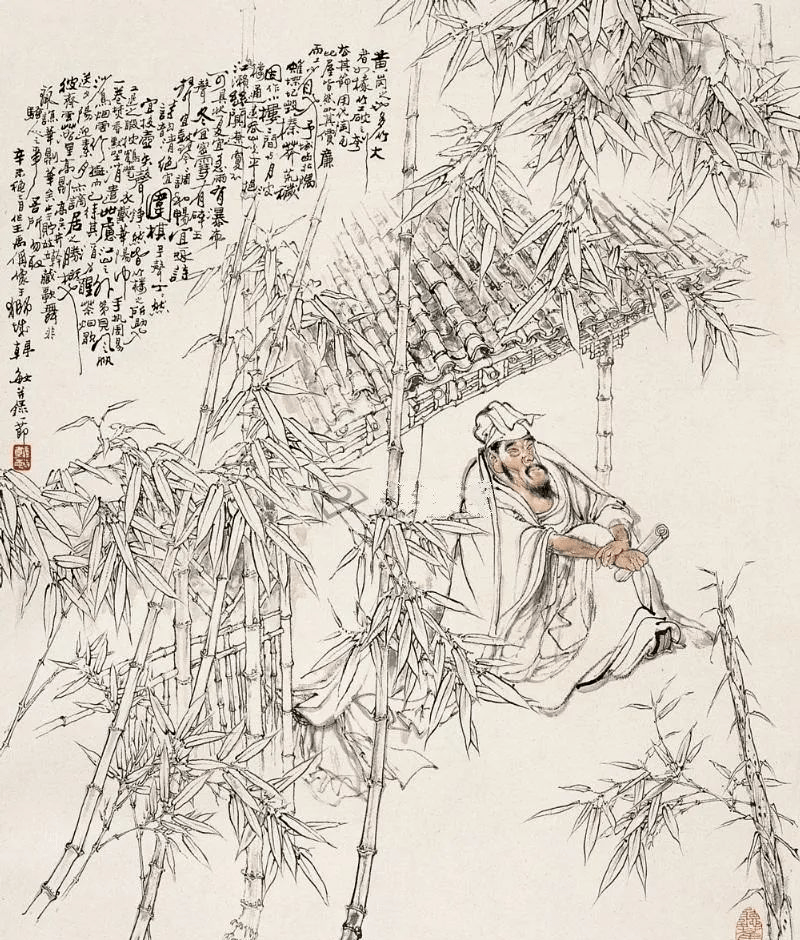 黄岡之地多竹大
者如椽竹工破之刳
去其節用代陶瓦
比屋皆然以其價廉
而工省也予城西北隅
雉堞圮毀蓁莽荒穢
因作小樓二間與月波
樓通遠吞山光平挹
江瀨幽闃遼夐不
可具狀夏宜急雨有瀑布
聲冬宜密雪有碎玉
聲宜鼓琴琴調和暢宜詠詩
詩韵清絕宜
圍棋子聲丁丁然
宜投壺矢聲錚錚然皆竹樓之所助也
公退之暇被鶴氅衣戴華陽巾手執周易
一卷焚香默坐消遣世慮江山之外第見風帆
沙鳥烟雲竹樹而已待其酒力醒茶烟歇
送夕陽迎素月亦謫居之勝概也
彼齊雲落星高則高矣井幹麗譙
華則華矣止于貯妓女藏歌舞非
騷人之事吾所不取
辛未 王禹偁 韓敏并録一節